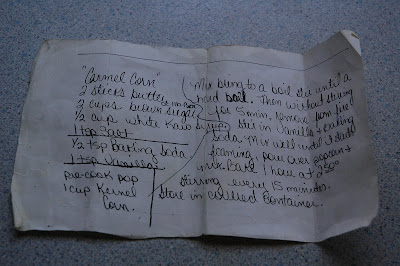 "Carmel Corn"
2 sticks butter
2 cups brown sugar
1/2 cup white Karo syrup
1 tsp Salt
1/2 tsp Baking Soda
1 tsp Vanilla
pre-cook pop
1 cup Kernel
Corn.
Mix bring to a boil stir until a
hard boil. Then without stirring
for 5 min, remove from fire
Stir in Vanilla & baking
soda. Mix well until it starts
foaming, pour over popcorn &
mix. Bake 1 hour at 250°
stirring every 15 minutes.
Store in Container.